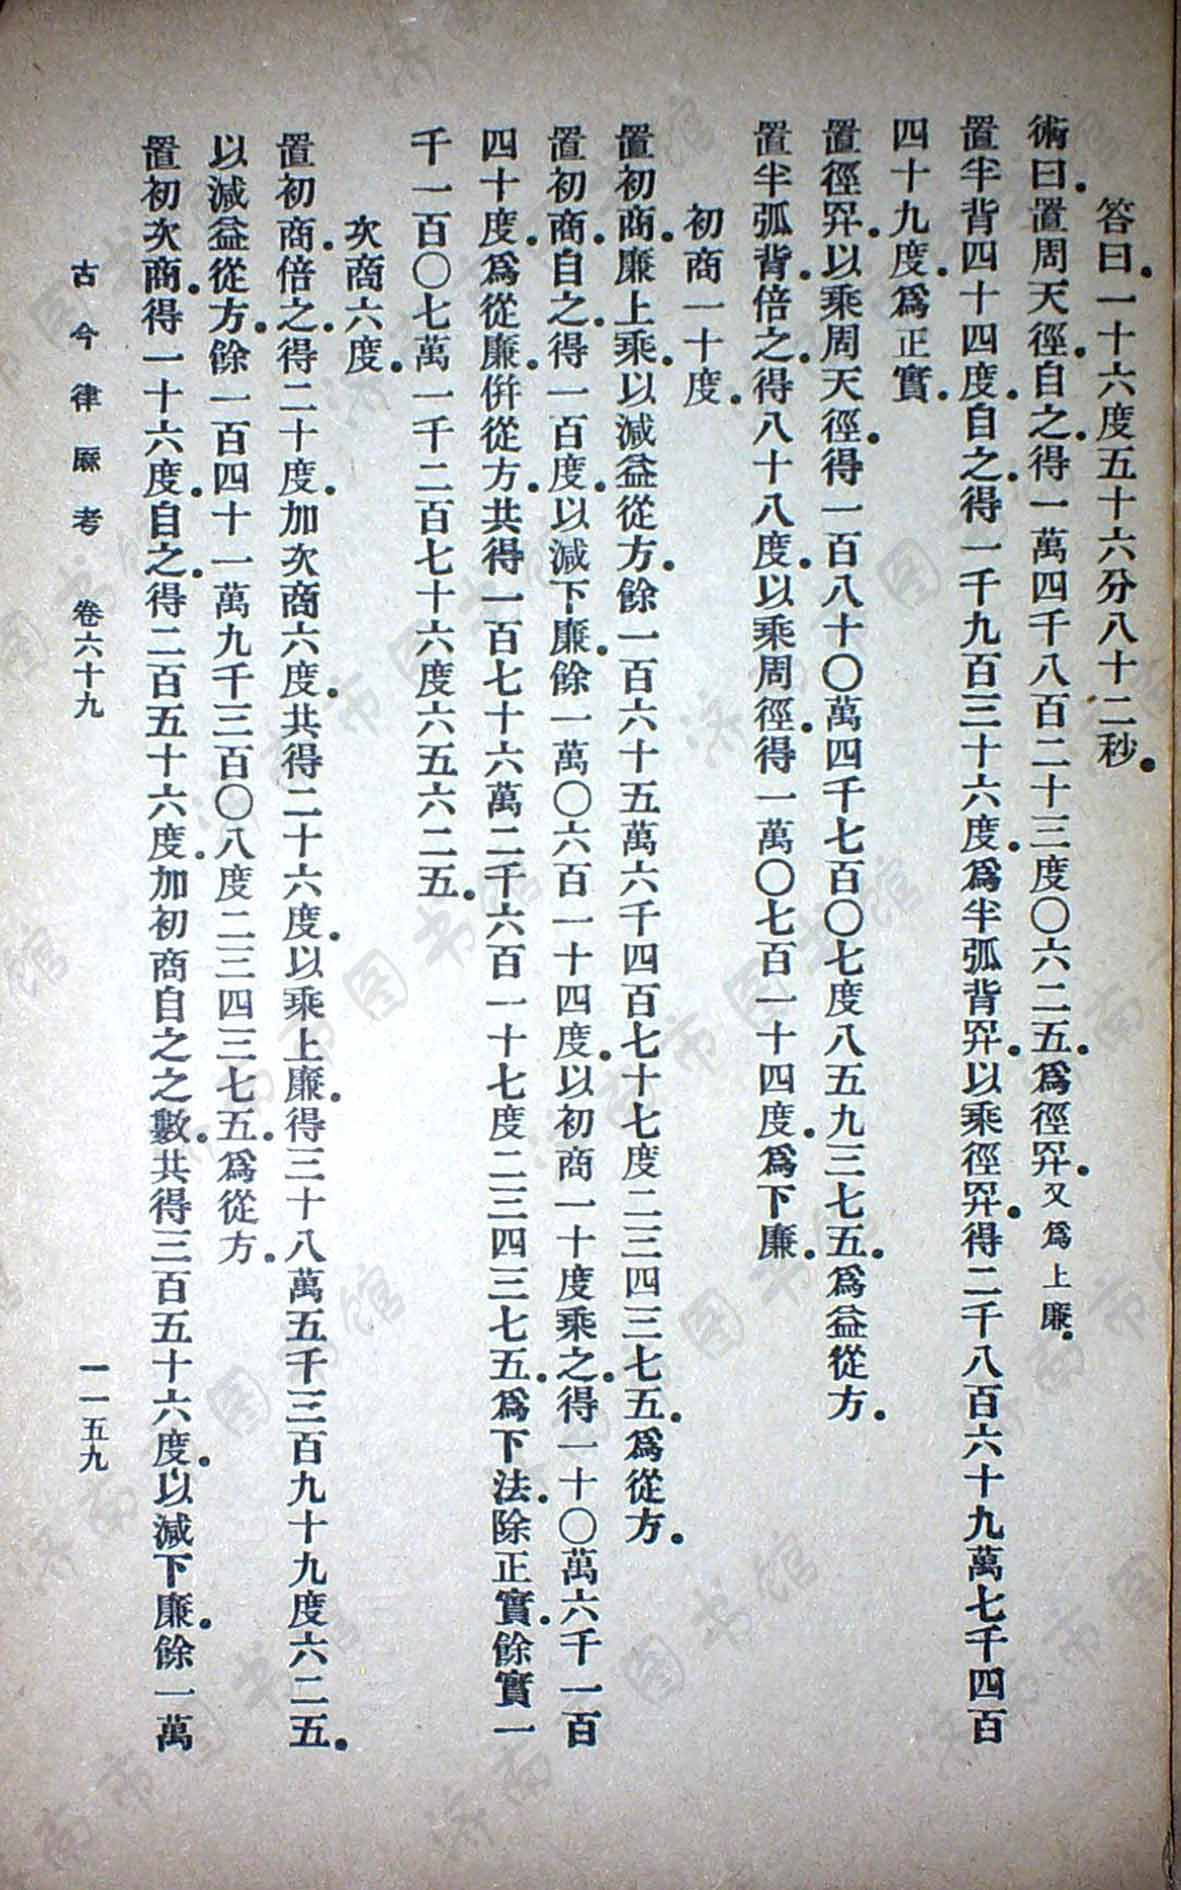 答曰。一十六度五十六分八十二秒。
術曰。置周天徑。自之。得一萬四千八百二十三度〇六二五。爲徑羃。又爲上廉。
置半背四十四度。自之。得一千九百三十六度。爲半弧背羃。以乘徑羃。得二千八百六十九萬七千四百
四十九度。爲正實。
置徑羃。以乘周天徑。得一百八十〇萬四千七百〇七度八五九三七五。爲益從方。
置半弧背。倍之。得八十八度。以乘周徑。得一萬〇七百一十四度。爲下廉。
初商一十度。
置初商。廉上乘。以減益從方。餘一百六十五萬六千四百七十七度二三四三七五。爲從方。
置初商。自之。得一百度。以減下廉。餘一萬〇六百一十四度。以初商一十度乘之。得一十〇萬六千一百
四十度。爲從廉。併從方。共得一百七十六萬二千六百一十七度二三四三七五。爲下法。除正實。餘實一
千一百〇七萬一千二百七十六度六五六二五。
次商六度。
置初商。倍之。得二十度。加次商六度。共得二十六度。以乘上廉。得三十八萬五千三百九十九度六二五。
以減益從方。餘一百四十一萬九千三百〇八度二三四三七五。爲從方。
置初次商。得一十六度。自之。得二百五十六度。加初商自之之數。共得三百五十六度。以減下廉。餘一萬
古今律厤考 卷六十九 一一五九
濟南市图书馆